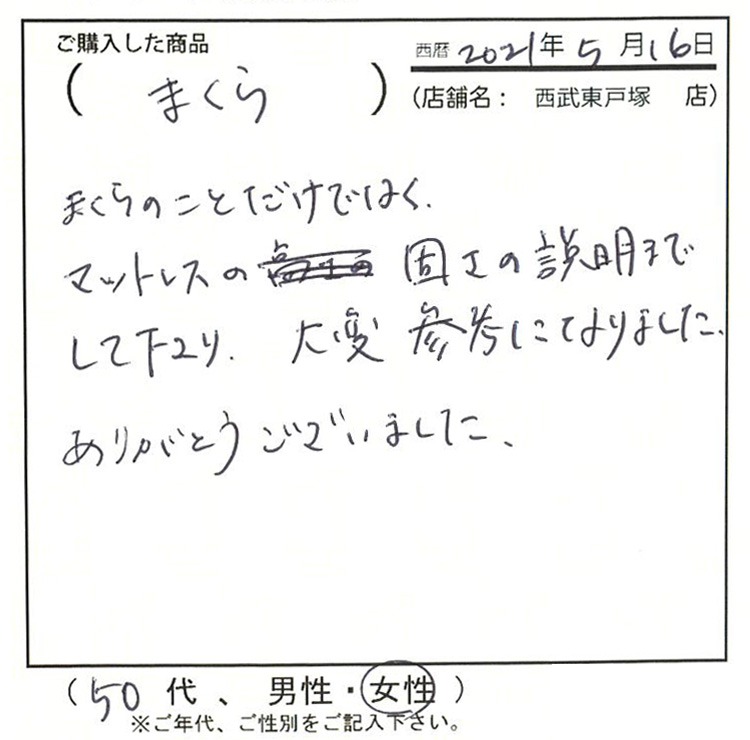 ご購入した商品
西暦 2021年 5月16日
(まくら)
(店舗名： 西武東戸塚 店)
まくらのことだけではなく、
マットレスの 固さの説明まで
して下さり、大変 参考になりました、
ありがとうございました、
(50代、男性・女性)
※ご年代、ご性別をご記入下さい。